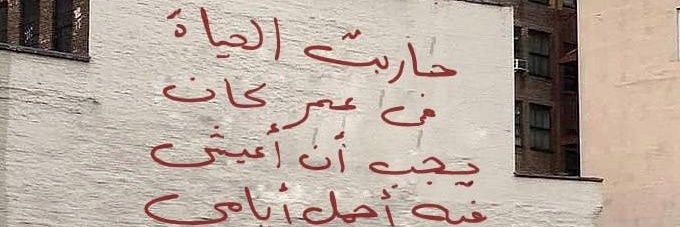 حاربت الحياة
في عمر كان
يجب أن أعيش
فيه أجمل أيامي